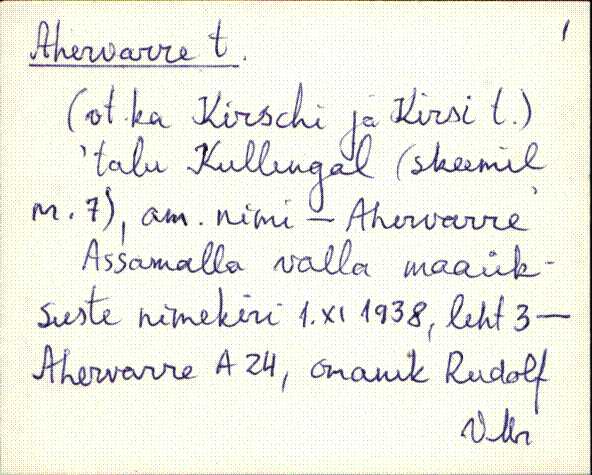 Ahervarre t. 1
(vt. ka Kirschi ja Kirsi t.)
'talu Kullengal (skeemil
nr. 7), am. nimi – Ahervarre'
Assamalla valla maaük-
suste nimekiri 1.XI 1938, leht 3 –
Ahervarre A 24, omanik Rudolf